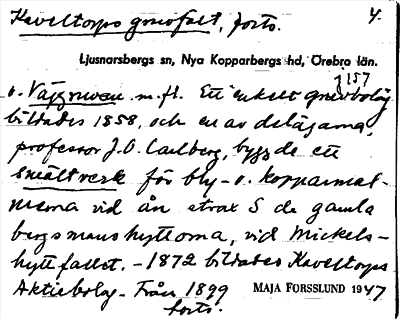 Kaveltorps gruvfält, forts. 4.
Ljusnarsbergs sn, Nya Kopparbergs hd, Örebro län.
g 157
o. Väggruvan m.fl. Ett enkelt gruvbolag
bildades 1858, och en av delägarna,
professor J.O. Carlberg, byggde ett
smältverk för bly- o. kopparmal-
merna vid ån strax S de gamla
bergsmanshyttorna, vid Mickels-
hyttfallet. - 1872 bildades Kaveltorps
Aktiebolag - Från 1899 MAJA FORSSLUND 1947
forts.